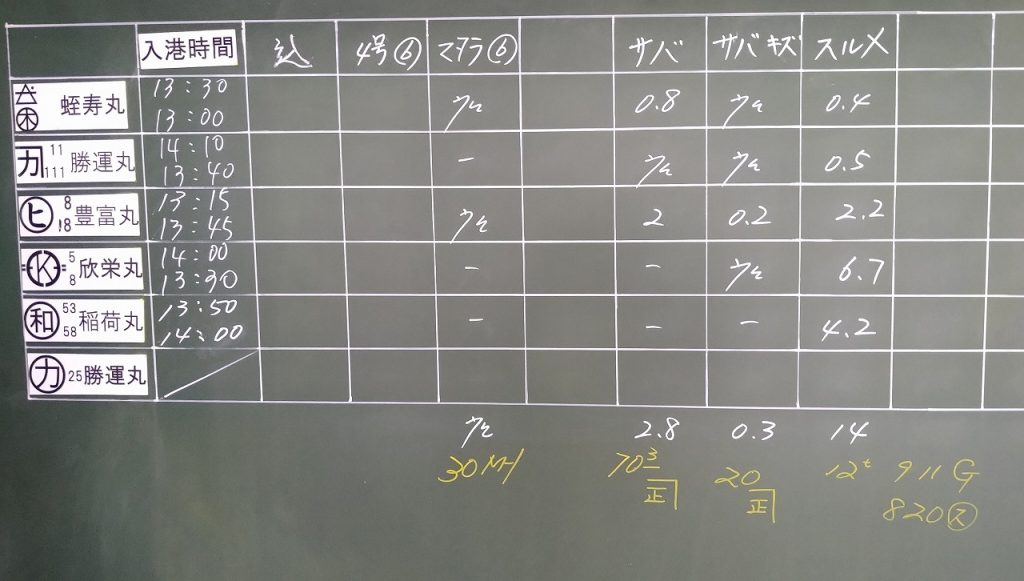 入港時間 込 4号⑥ マダラ⑥ サバ サバキズ スルメ
蛭寿丸 13:30 13:00 少々 0.8 少々 0.4
カ 11 111 勝運丸 14:10 13:40 − 少々 少々 0.5
ヒ 8 18 豊富丸 13:15 13:45 少々 2 0.2 2.2
K 5 8 欣栄丸 14:00 13:30 − − 少々 6.7
和 53 58 稲荷丸 13:50 14:00 − − − 4.2
カ 25 勝運丸
少々 2.8 0.3 14
30 70 20 12t 911G
正 正 820㋜